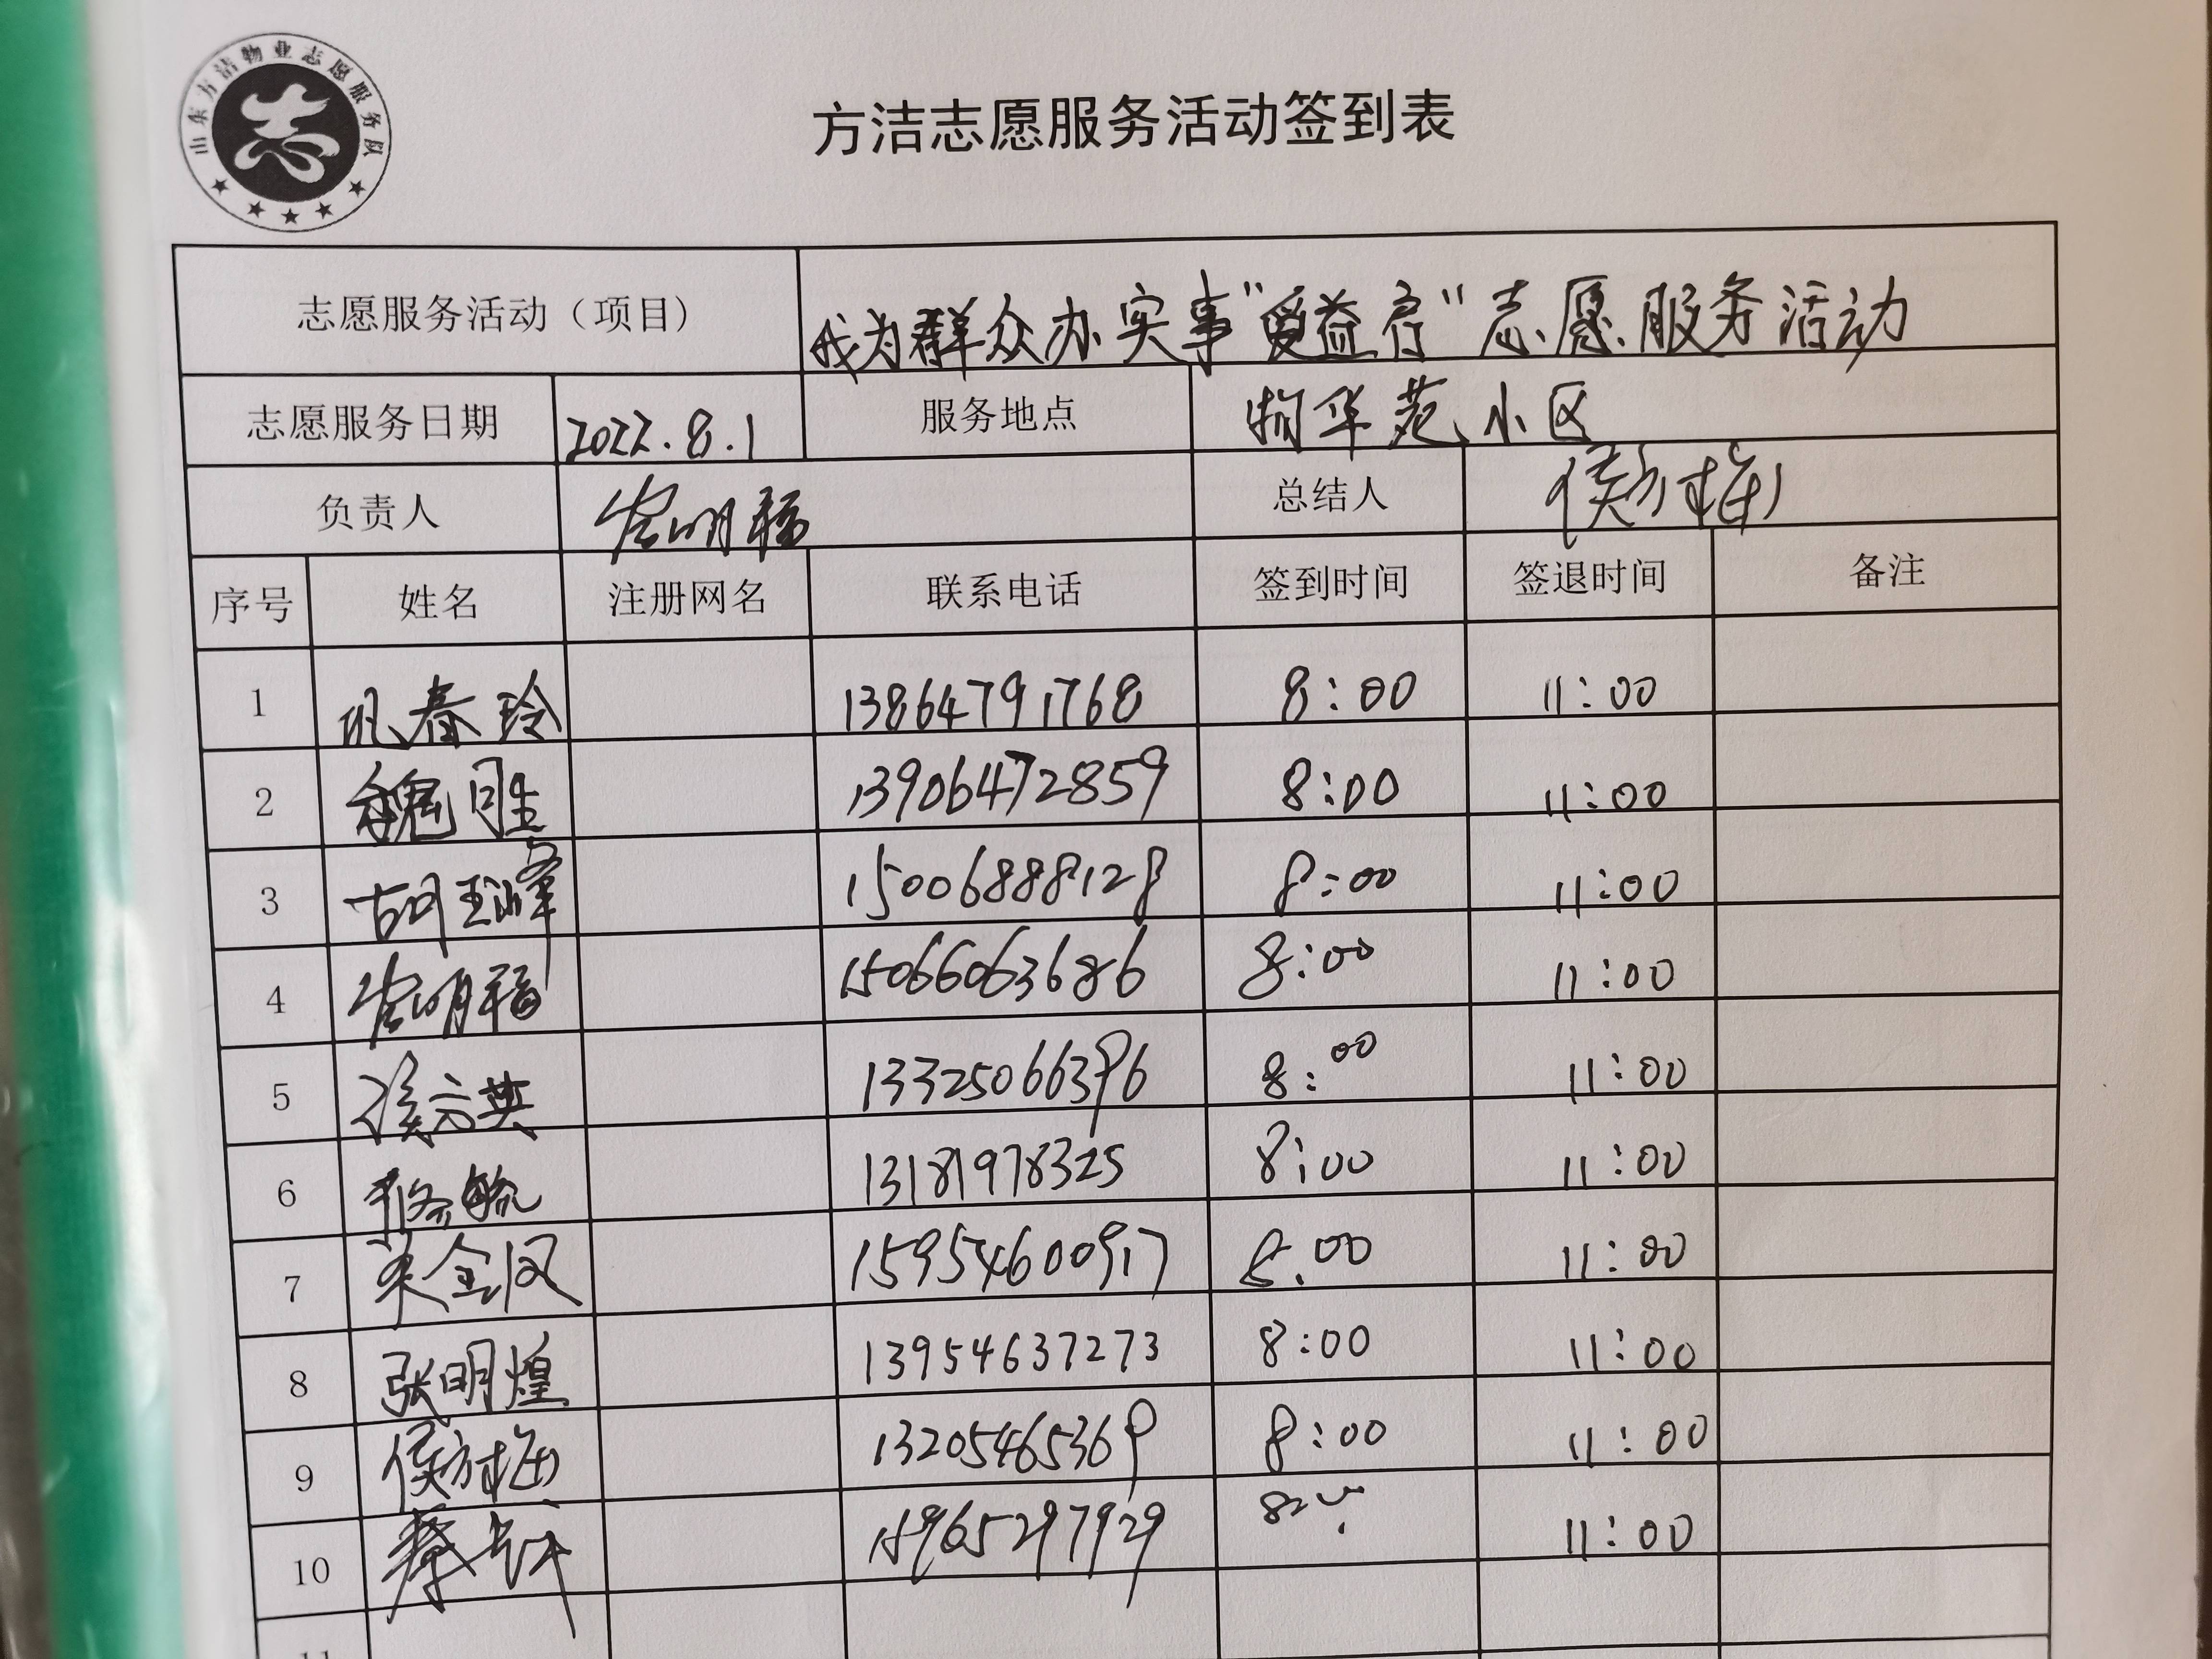 山东方洁物业志愿服务队
志
方洁志愿服务活动签到表
志愿服务活动（项目） 我为群众办实事“爱益行”志愿服务活动
志愿服务日期 2022.8.1 服务地点 物华苑小区
负责人 明福 总结人 侯方梅
序号 姓名 注册网名 联系电话 签到时间 签退时间 备注
1 巩春玲 13864791768 8:00 11:00
2 魏同生 13906472859 8:00 11:00
3 胡玉峰 15006888128 8:00 11:00
4 明福 15066063686 8:00 11:00
5 13325066396 8:00 11:00
6 13181978325 8:00 11:00
7 15954600917 8:00 11:00
8 张明煌 13954637273 8:00 11:00
9 侯方梅 13205465369 8:00 11:00
10 15965297929 11:00
11